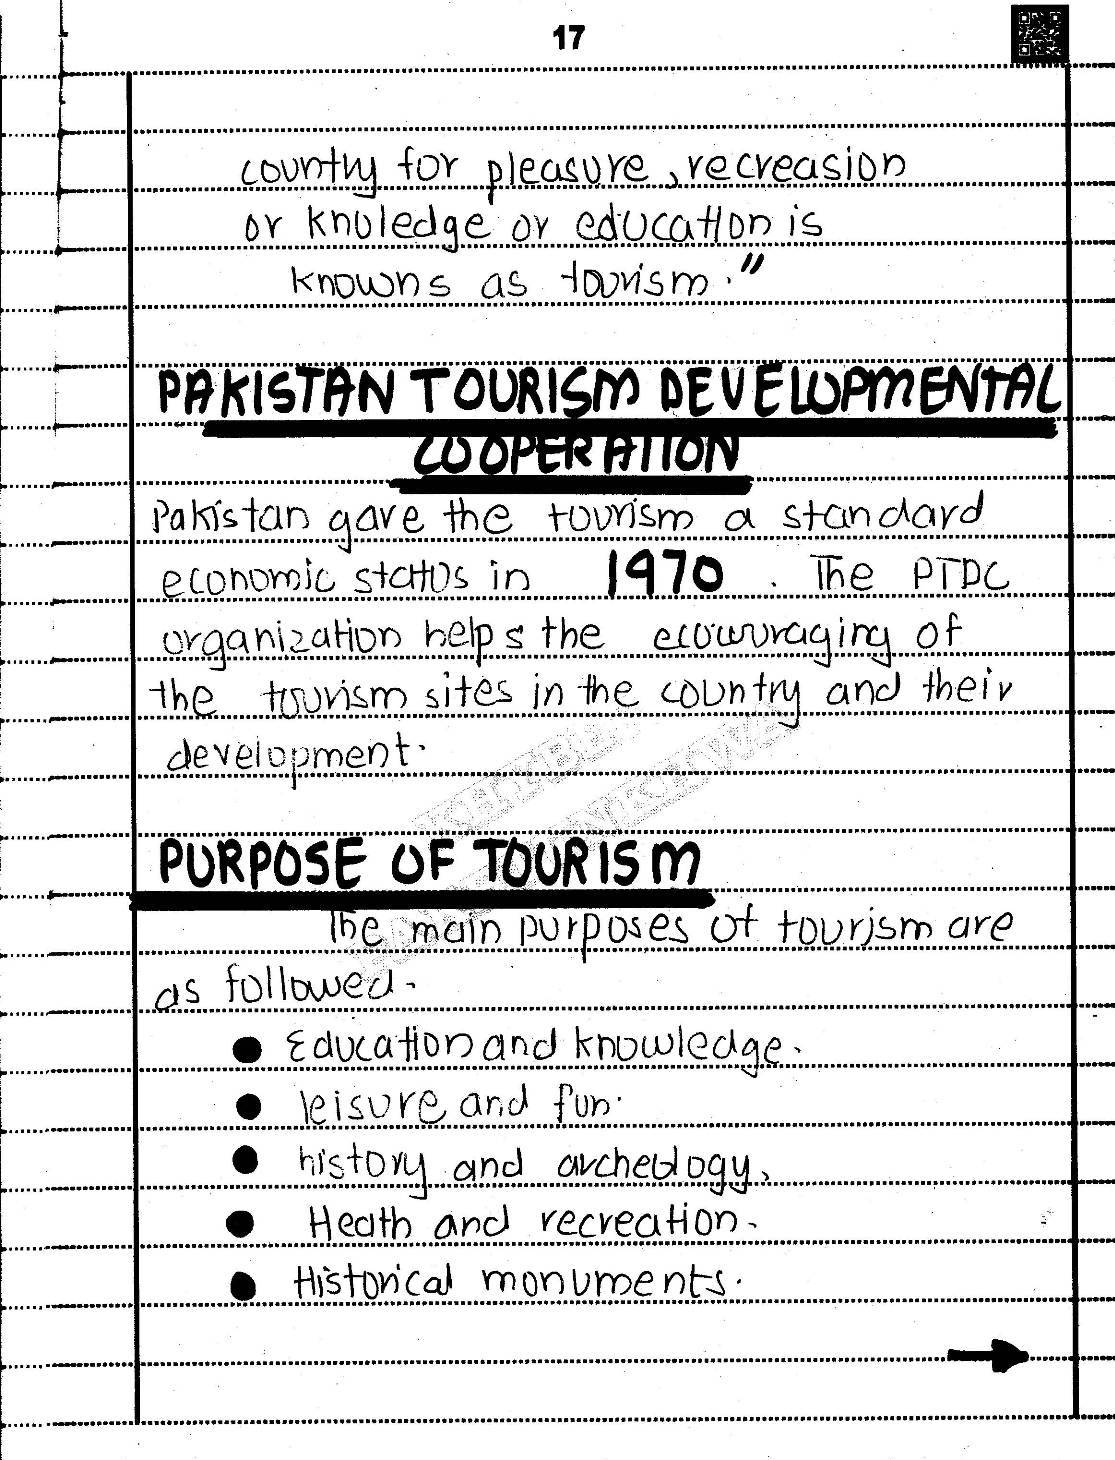 17
country for pleasure, recreasion
or knoledge or education is
knowns as tourism."
PAKISTAN TOURISM DEVELOPMENTAL
COOPERATION
Pakistan gave the tourism a standard
economic status in 1970. The PTDC
organization helps the ecouuraging of
the tourism sites in the country and their
development.
KHYBER
PAKHTUNKHWA
PURPOSE OF TOURISM
The main purposes of tourism are
as followed.
Education and knowledge.
leisure and fun.
history and archeology,
Heath and recreation.
Historical monuments.